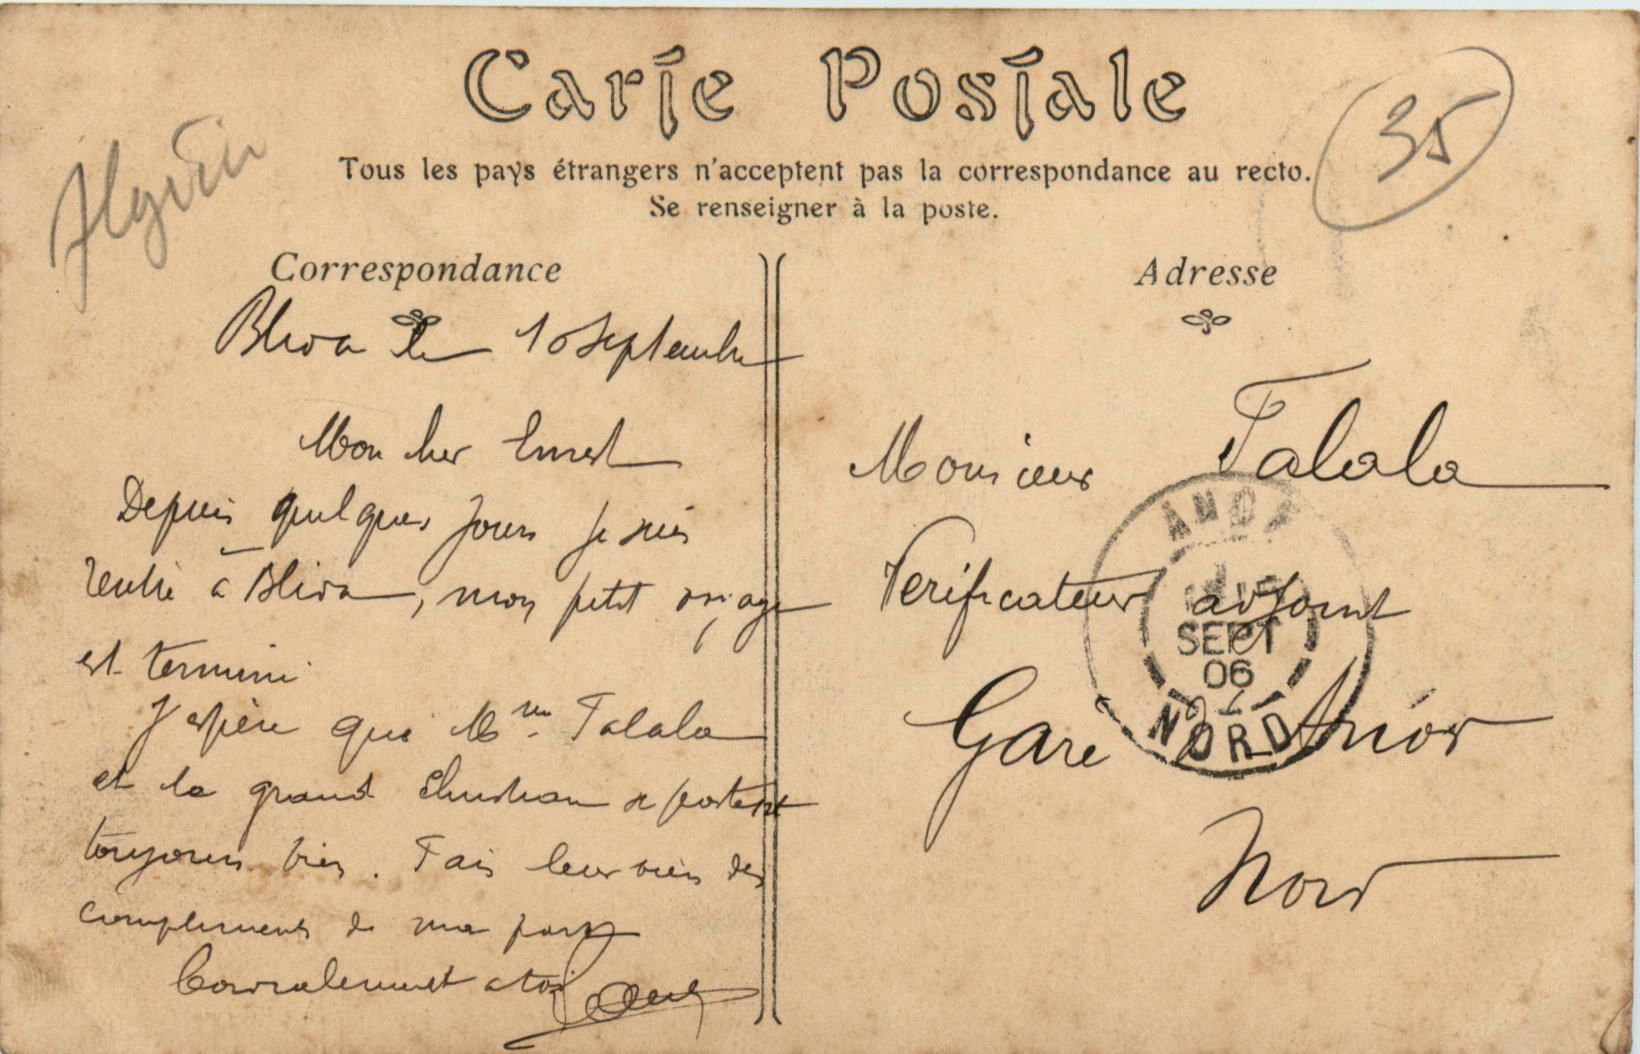 Carte Postale
Tous les pays étrangers n'acceptent pas la correspondance au recto.
Se renseigner à la poste.
35
Correspondance
Adresse
Blida le 10 Septembre
Mon cher Ernest
Depuis quelques jours je suis
rentré à Blida, mon petit voyage
est terminé
J'espère que Mme Talala
et le grand Christian se portent
toujours bien. Fais leur bien des
compliments de ma part
Cordialement à toi
Monsieur Talala
Verificateur adjoint
Gare d'Anor
Nord
ANOR
SEPT
06
NORD